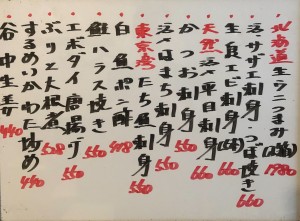 北海道生ウニつまみ(塩)1980
活サザエ刺身・つぼ焼き
生ボタンエビ刺身(2本)660
天然活〆平目刺身660
かつお刺身550
活はまち刺身550
東京湾たち魚刺身550
白魚ポン酢498
鮭ハラス焼き550
エボダイ唐揚げ550
ぶりと大根煮528
するめいかわた炒め440
谷中生姜440